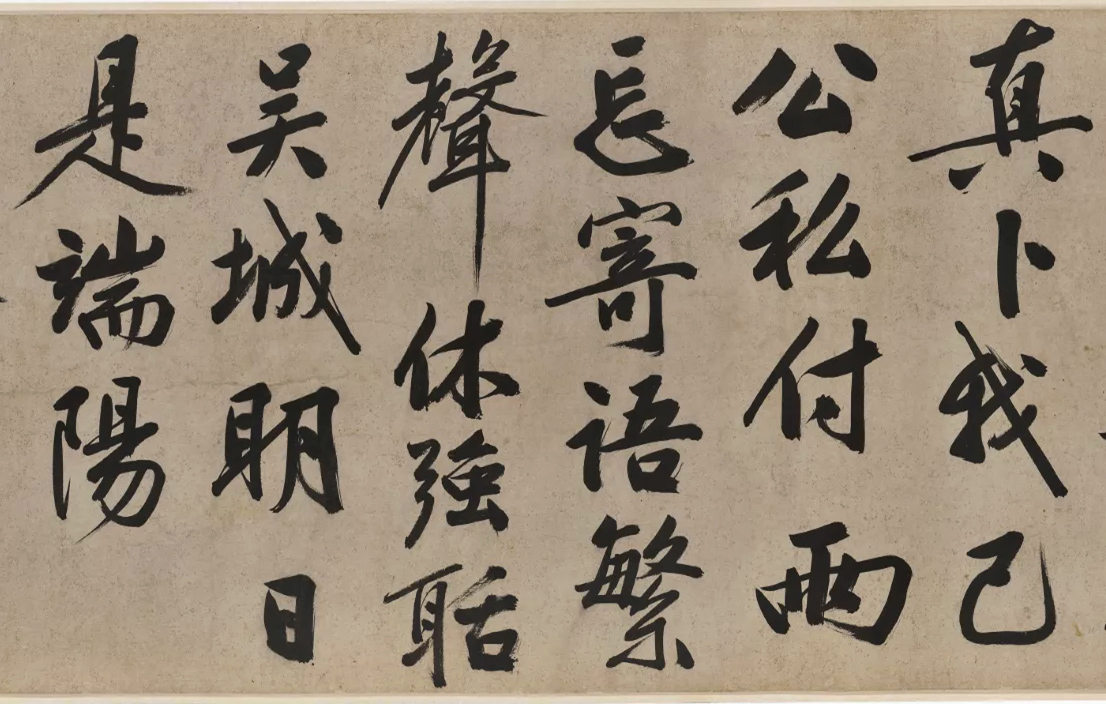 真卜我已
公私付兩
忘寄語繁
聲休強聒
吳城明日
是端陽